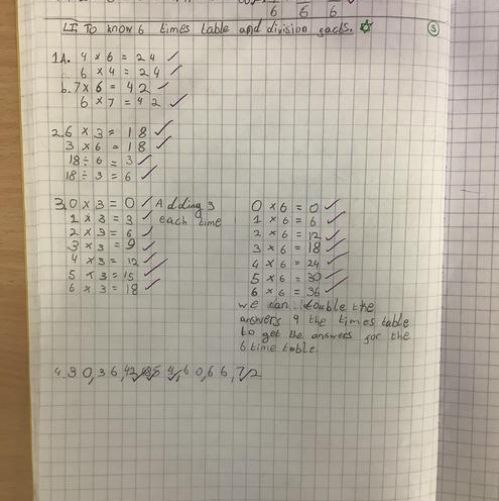 6 6 6
LI To know 6 times table and division facts.
1a. 4 x 6 = 24
6 x 4 = 24
b. 7 x 6 = 42
6 x 7 = 42
2. 6 x 3 = 18
3 x 6 = 18
18 ÷ 6 = 3
18 ÷ 3 = 6
3. 0 x 3 = 0 Adding 3
1 x 3 = 3 each time
2 x 3 = 6
3 x 3 = 9
4 x 3 = 12
5 x 3 = 15
6 x 3 = 18
0 x 6 = 0
1 x 6 = 6
2 x 6 = 12
3 x 6 = 18
4 x 6 = 24
5 x 6 = 30
6 x 6 = 36
we can double the
answers 9 the times table
to get the answers for the
6 time table
4. 30, 36, 42, 60, 66, 72